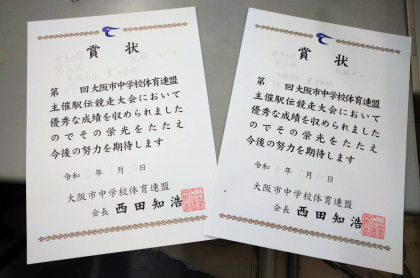 賞状
第　回大阪市中学校体育連盟
主催駅伝競走大会において
優秀な成績を収められました
のでその栄光をたたえ
今後の努力を期待します
令和　年　月　日
大阪市中学校体育連盟
会長 西田知浩
賞状
第　回大阪市中学校体育連盟
主催駅伝競走大会において
優秀な成績を収められました
のでその栄光をたたえ
今後の努力を期待します
令和　年　月　日
大阪市中学校体育連盟
会長 西田知浩